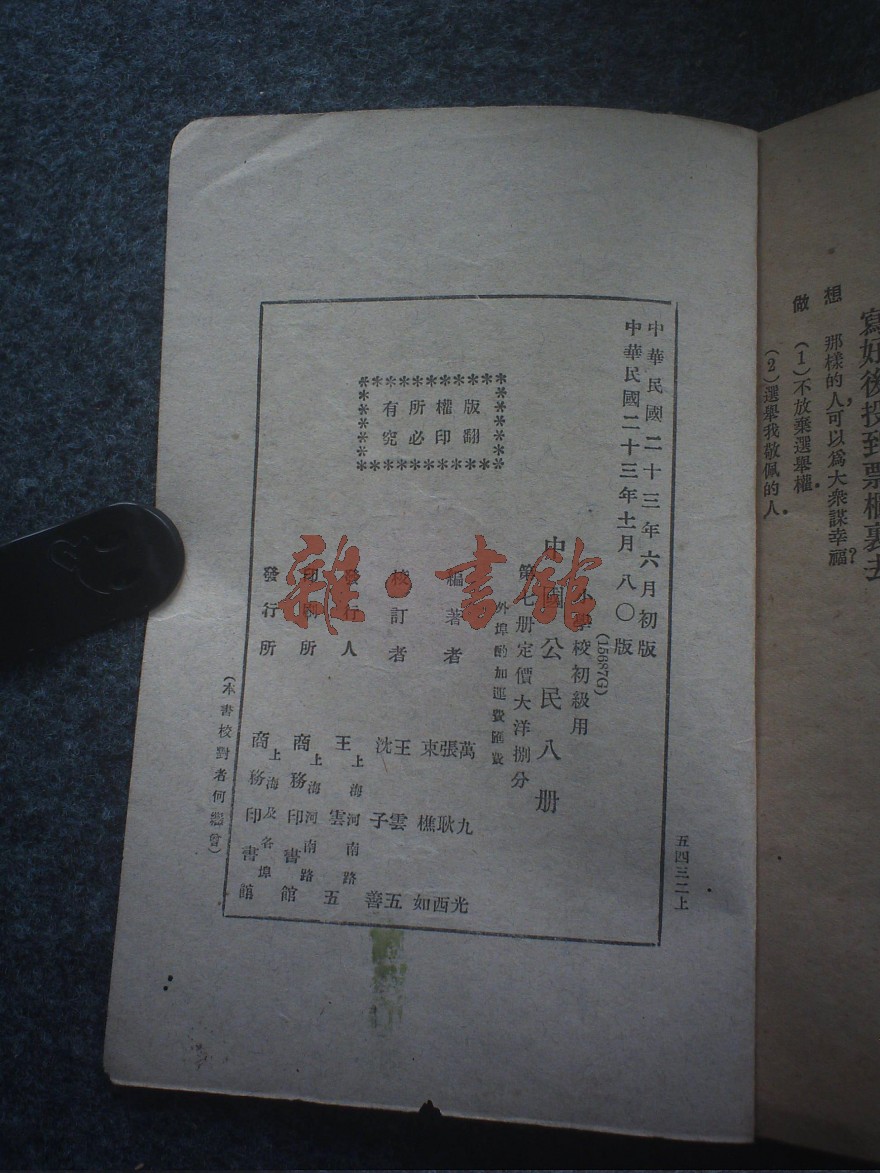 寫好後，投到票櫃裏去
想　那樣的人可以爲大衆謀幸福？
做　（1）不放棄選舉權．
（2）選舉我敬佩的人．
五四三二上
中華民國二十三年六月初版
中華民國二十三年十一月八〇版
(15687G)
小學校初級用
中國公民八册
第七册定價大洋捌分
外埠酌加運費匯費
版權所有
翻印必究
編著者　萬九光　張耿西　束樵如
校訂者　王雲五　沈子善
發行人　上海河南路　王雲五
印刷所　上海河南路　商務印書館
發行所　上海及各埠　商務印書館
（本書校對者何　曾）
雜·書館